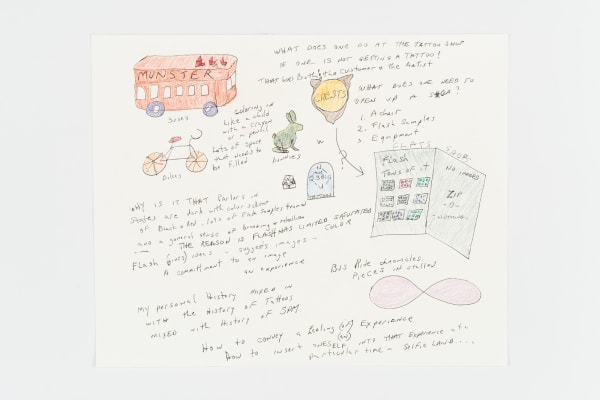 WHAT DOES ONE DO AT THE TATTOO SHOP
IF ONE IS NOT GETTING A TATTOO?
THAT GOES Both the Customer & the Artist
MUNSTER
Buses
Coloring in
Like a child
with a crayon
or a pencil
Lots of space
that needs to
be filled
bunnies
Bikes
GHOSTS
WHAT DOES ONE NEED TO
OPEN UP A
1. A chair
2. Flash Samples
3. Equipment
Flash
Tons of it
NO
ZIP
-0-
WHY IS IT THAT Parlors in
States are dark with color scheme
of Black & Red - lots of Flash Samples
and a general sense of brooding & rebellion
THE REASON IS FLASH HAS LIMITED SATURATED
COLOR
Flash gives ideas - suggests images -
A commitment to an image
an experience
Bus Ride chronicles
PIECES installed
My personal History MIXED IN
WITH the History of Tattoos
MIXED with History of SPAM
How to convey a feeling (or) Experience
(or)
How to insert ONESELF INTO THAT Experience at a
particular time - Selfie LAND....